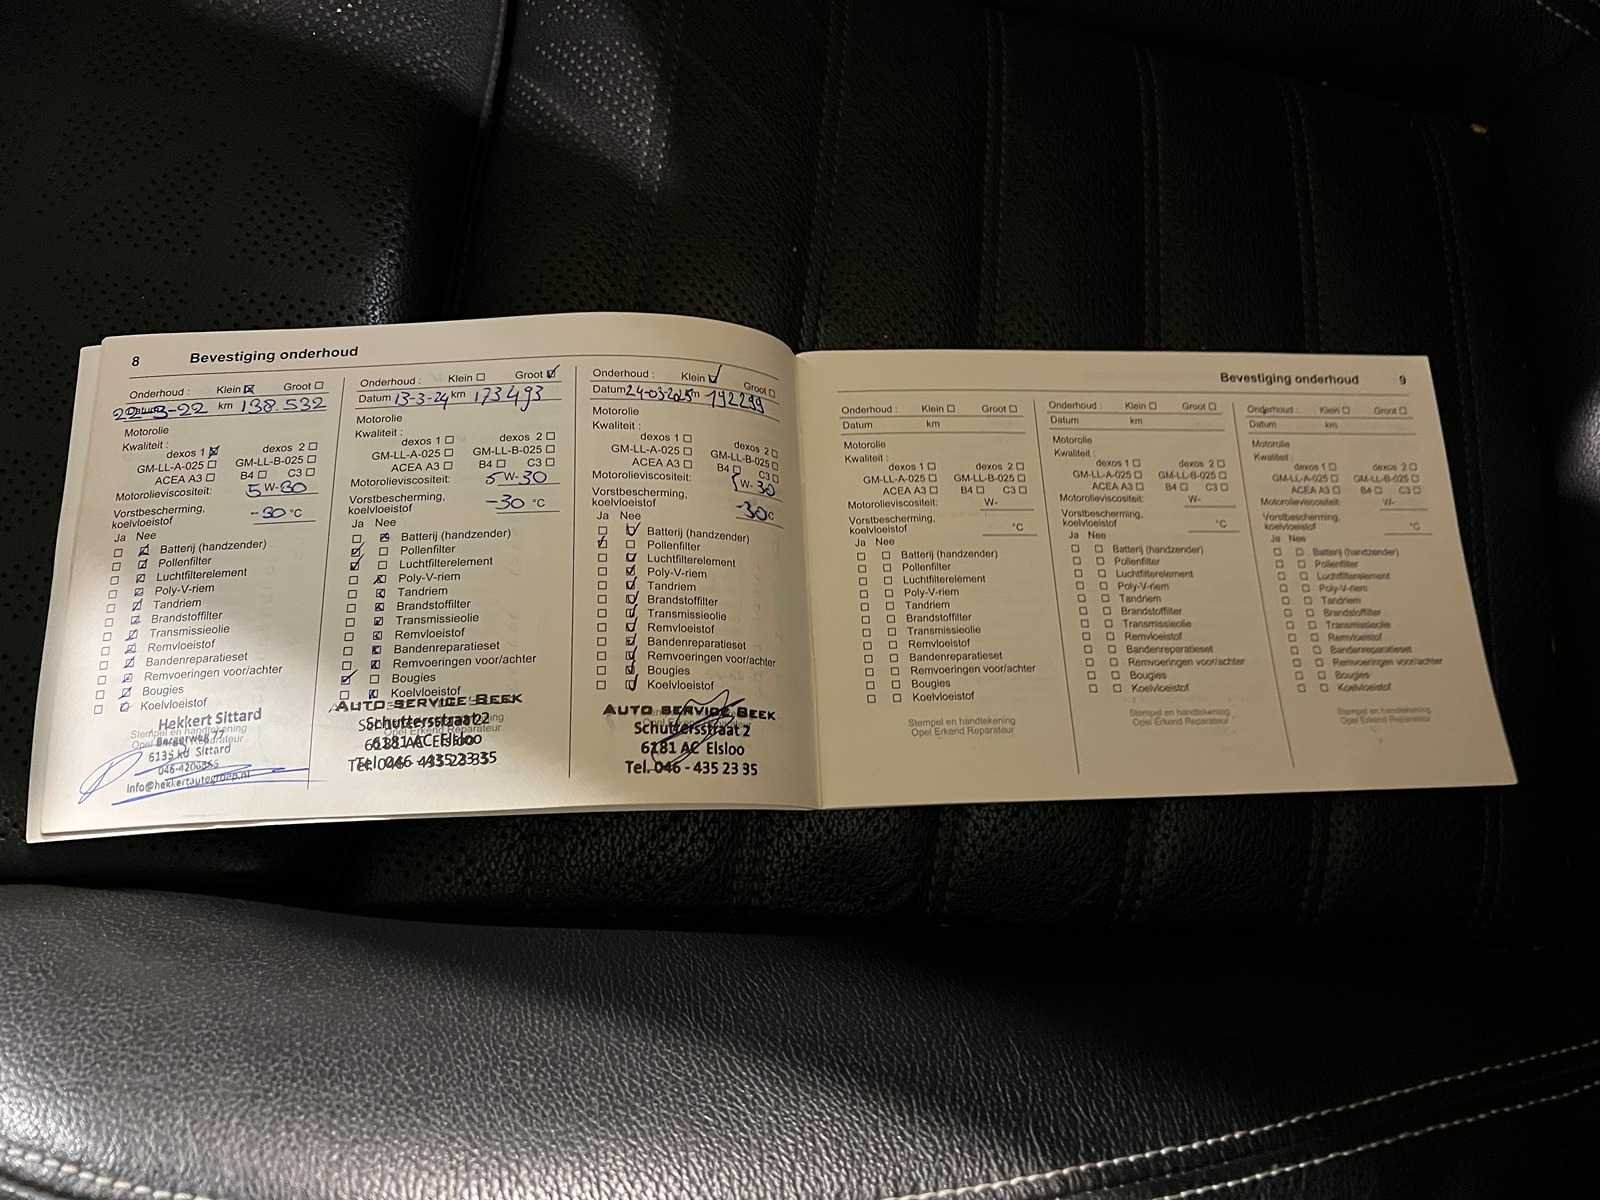 8 Bevestiging onderhoud
Onderhoud : Klein Groot
Datum 22-3-22 km 138.532
Motorolie
Kwaliteit :
dexos 1 dexos 2
GM-LL-A-025 GM-LL-B-025
ACEA A3 B4 C3
Motorolieviscositeit: 5 W-30
Vorstbescherming,
koelvloeistof -30 °C
Ja Nee
Batterij (handzender)
Pollenfilter
Luchtfilterelement
Poly-V-riem
Tandriem
Brandstoffilter
Transmissieolie
Remvloeistof
Bandenreparatieset
Remvoeringen voor/achter
Bougies
Koelvloeistof
Stempel en handtekening
Opel Erkend Reparateur
Hekkert Sittard
Bergerweg
Sittard
info@hekkertautogroep.nl
Onderhoud : Klein Groot
Datum 13-3-24 km 173493
Motorolie
Kwaliteit :
dexos 1 dexos 2
GM-LL-A-025 GM-LL-B-025
ACEA A3 B4 C3
Motorolieviscositeit: 5 W-30
Vorstbescherming,
koelvloeistof -30 °C
Ja Nee
Batterij (handzender)
Pollenfilter
Luchtfilterelement
Poly-V-riem
Tandriem
Brandstoffilter
Transmissieolie
Remvloeistof
Bandenreparatieset
Remvoeringen voor/achter
Bougies
Koelvloeistof
AUTO SERVICE BEEK
Schuttersstraat 2
6181 AC Elsloo
Tel. 046 - 435 23 35
Onderhoud : Klein Groot
Datum 24-03-2025 km 192299
Motorolie
Kwaliteit :
dexos 1 dexos 2
GM-LL-A-025 GM-LL-B-025
ACEA A3 B4 C3
Motorolieviscositeit: 5 W-30
Vorstbescherming,
koelvloeistof -30 °C
Ja Nee
Batterij (handzender)
Pollenfilter
Luchtfilterelement
Poly-V-riem
Tandriem
Brandstoffilter
Transmissieolie
Remvloeistof
Bandenreparatieset
Remvoeringen voor/achter
Bougies
Koelvloeistof
AUTO SERVICE BEEK
Schuttersstraat 2
6181 AC Elsloo
Tel. 046 - 435 23 35
Bevestiging onderhoud 9
Onderhoud : Klein Groot
Datum km
Motorolie
Kwaliteit :
dexos 1 dexos 2
GM-LL-A-025 GM-LL-B-025
ACEA A3 B4 C3
Motorolieviscositeit: W-
Vorstbescherming,
koelvloeistof °C
Ja Nee
Batterij (handzender)
Pollenfilter
Luchtfilterelement
Poly-V-riem
Tandriem
Brandstoffilter
Transmissieolie
Remvloeistof
Bandenreparatieset
Remvoeringen voor/achter
Bougies
Koelvloeistof
Stempel en handtekening
Opel Erkend Reparateur
Onderhoud : Klein Groot
Datum km
Motorolie
Kwaliteit :
dexos 1 dexos 2
GM-LL-A-025 GM-LL-B-025
ACEA A3 B4 C3
Motorolieviscositeit: W-
Vorstbescherming,
koelvloeistof °C
Ja Nee
Batterij (handzender)
Pollenfilter
Luchtfilterelement
Poly-V-riem
Tandriem
Brandstoffilter
Transmissieolie
Remvloeistof
Bandenreparatieset
Remvoeringen voor/achter
Bougies
Koelvloeistof
Stempel en handtekening
Opel Erkend Reparateur
Onderhoud : Klein Groot
Datum km
Motorolie
Kwaliteit :
dexos 1 dexos 2
GM-LL-A-025 GM-LL-B-025
ACEA A3 B4 C3
Motorolieviscositeit: W-
Vorstbescherming,
koelvloeistof °C
Ja Nee
Batterij (handzender)
Pollenfilter
Luchtfilterelement
Poly-V-riem
Tandriem
Brandstoffilter
Transmissieolie
Remvloeistof
Bandenreparatieset
Remvoeringen voor/achter
Bougies
Koelvloeistof
Stempel en handtekening
Opel Erkend Reparateur